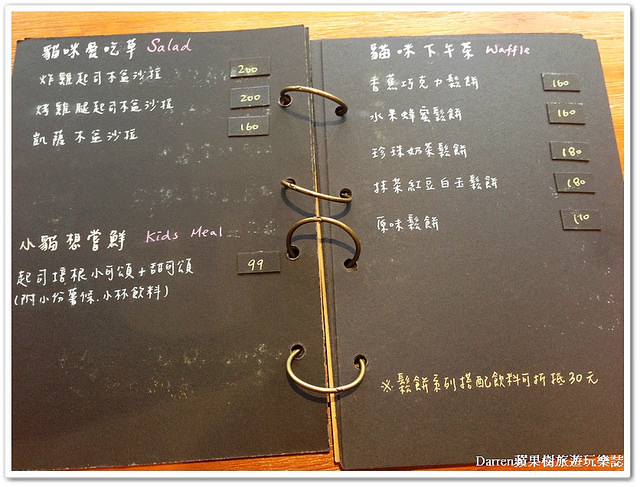 貓咪愛吃草 Salad
炸雞起司木盆沙拉 200
烤雞腿起司木盆沙拉 200
凱薩木盆沙拉 160
小貓想嘗鮮 Kids Meal
起司培根小可頌+甜可頌 99
(附小份薯條.小杯飲料)
貓咪下午茶 Waffle
香蕉巧克力鬆餅 160
水果蜂蜜鬆餅 160
珍珠奶茶鬆餅 180
抹茶紅豆白玉鬆餅 180
原味鬆餅 110
※鬆餅系列搭配飲料可折抵30元
Darren蘋果樹旅遊玩樂誌